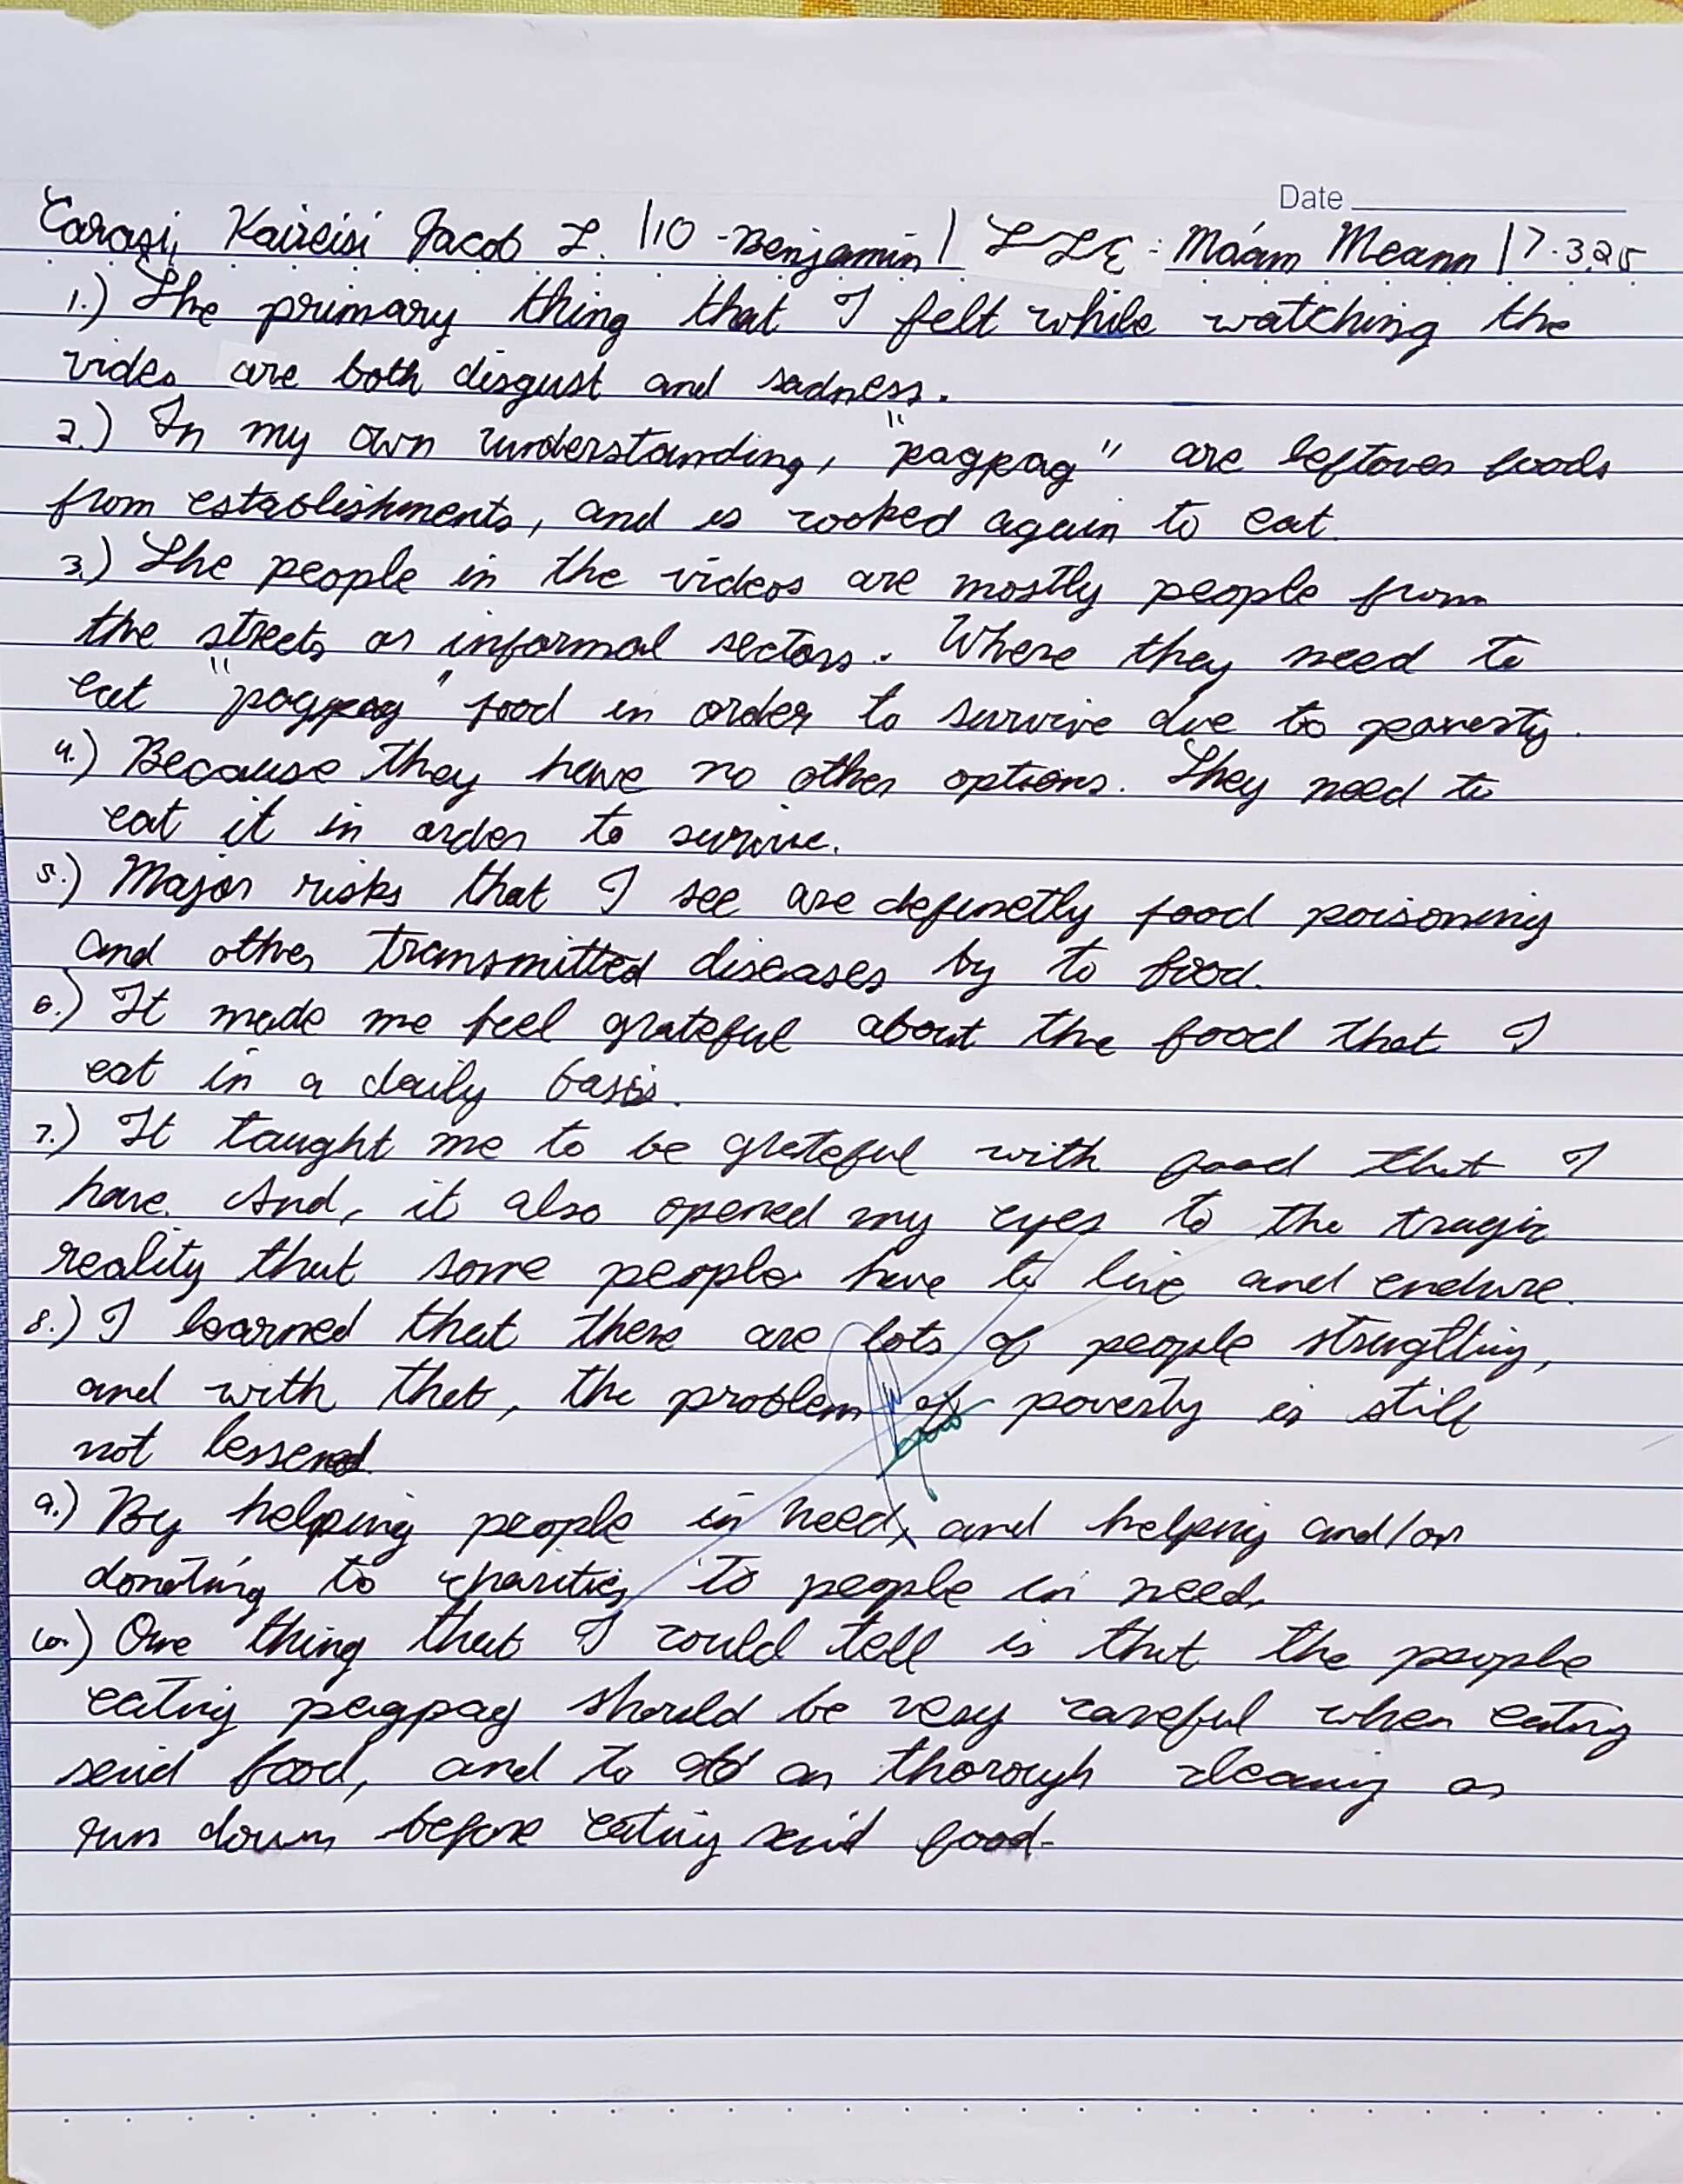 Date
Jacob L. | 10 - Benjamin | LLE : Ma'am Meann | 7.3.25
1.) The primary thing that I felt while watching the
video are both disgust and sadness.
2.) In my own understanding, "pagpag" are leftover foods
from establishments, and is cooked again to eat.
3.) The people in the videos are mostly people from
the streets or informal sectors. Where they need to
eat "pagpag" food in order to survive due to poverty.
4.) Because they have no other options. They need to
eat it in order to survive.
5.) Major risks that I see are definetly food poisoning
and other transmitted diseases by to food.
6.) It made me feel grateful about the food that I
eat in a daily basis.
7.) It taught me to be grateful with food that I
have. And, it also opened my eyes to the tragic
reality that some people have to live and endure.
8.) I learned that there are lots of people strugtling,
and with that, the problem of poverty is still
not lessened.
9.) By helping people in need, and helping and/or
donating to charities to people in need.
10.) One thing that I could tell is that the people
eating pagpag should be very careful when eating
said food, and to do an thorough cleaning or
run down before eating said food.